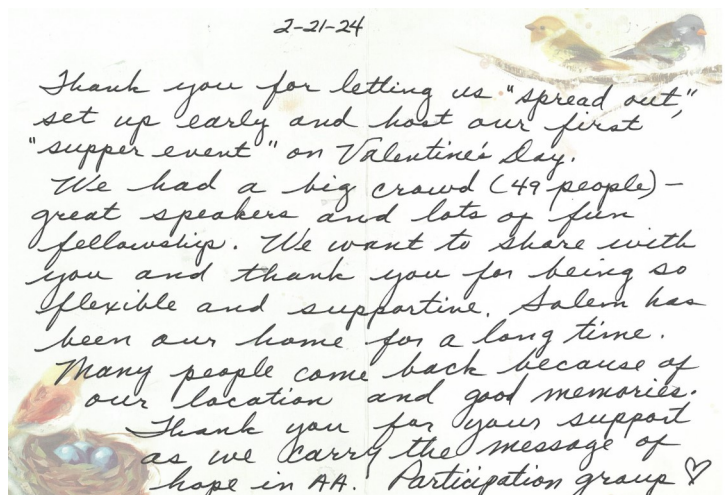 2-21-24
Thank you for letting us "spread out,"
set up early and host our first
"supper event" on Valentine's Day.
We had a big crowd (49 people) -
great speakers and lots of fun
fellowship. We want to share with
you and thank you for being so
flexible and supportive. Salem has
been our home for a long time.
Many people come back because of
our location and good memories.
Thank you for your support
as we carry the message of
hope in AA! Participation group ♡